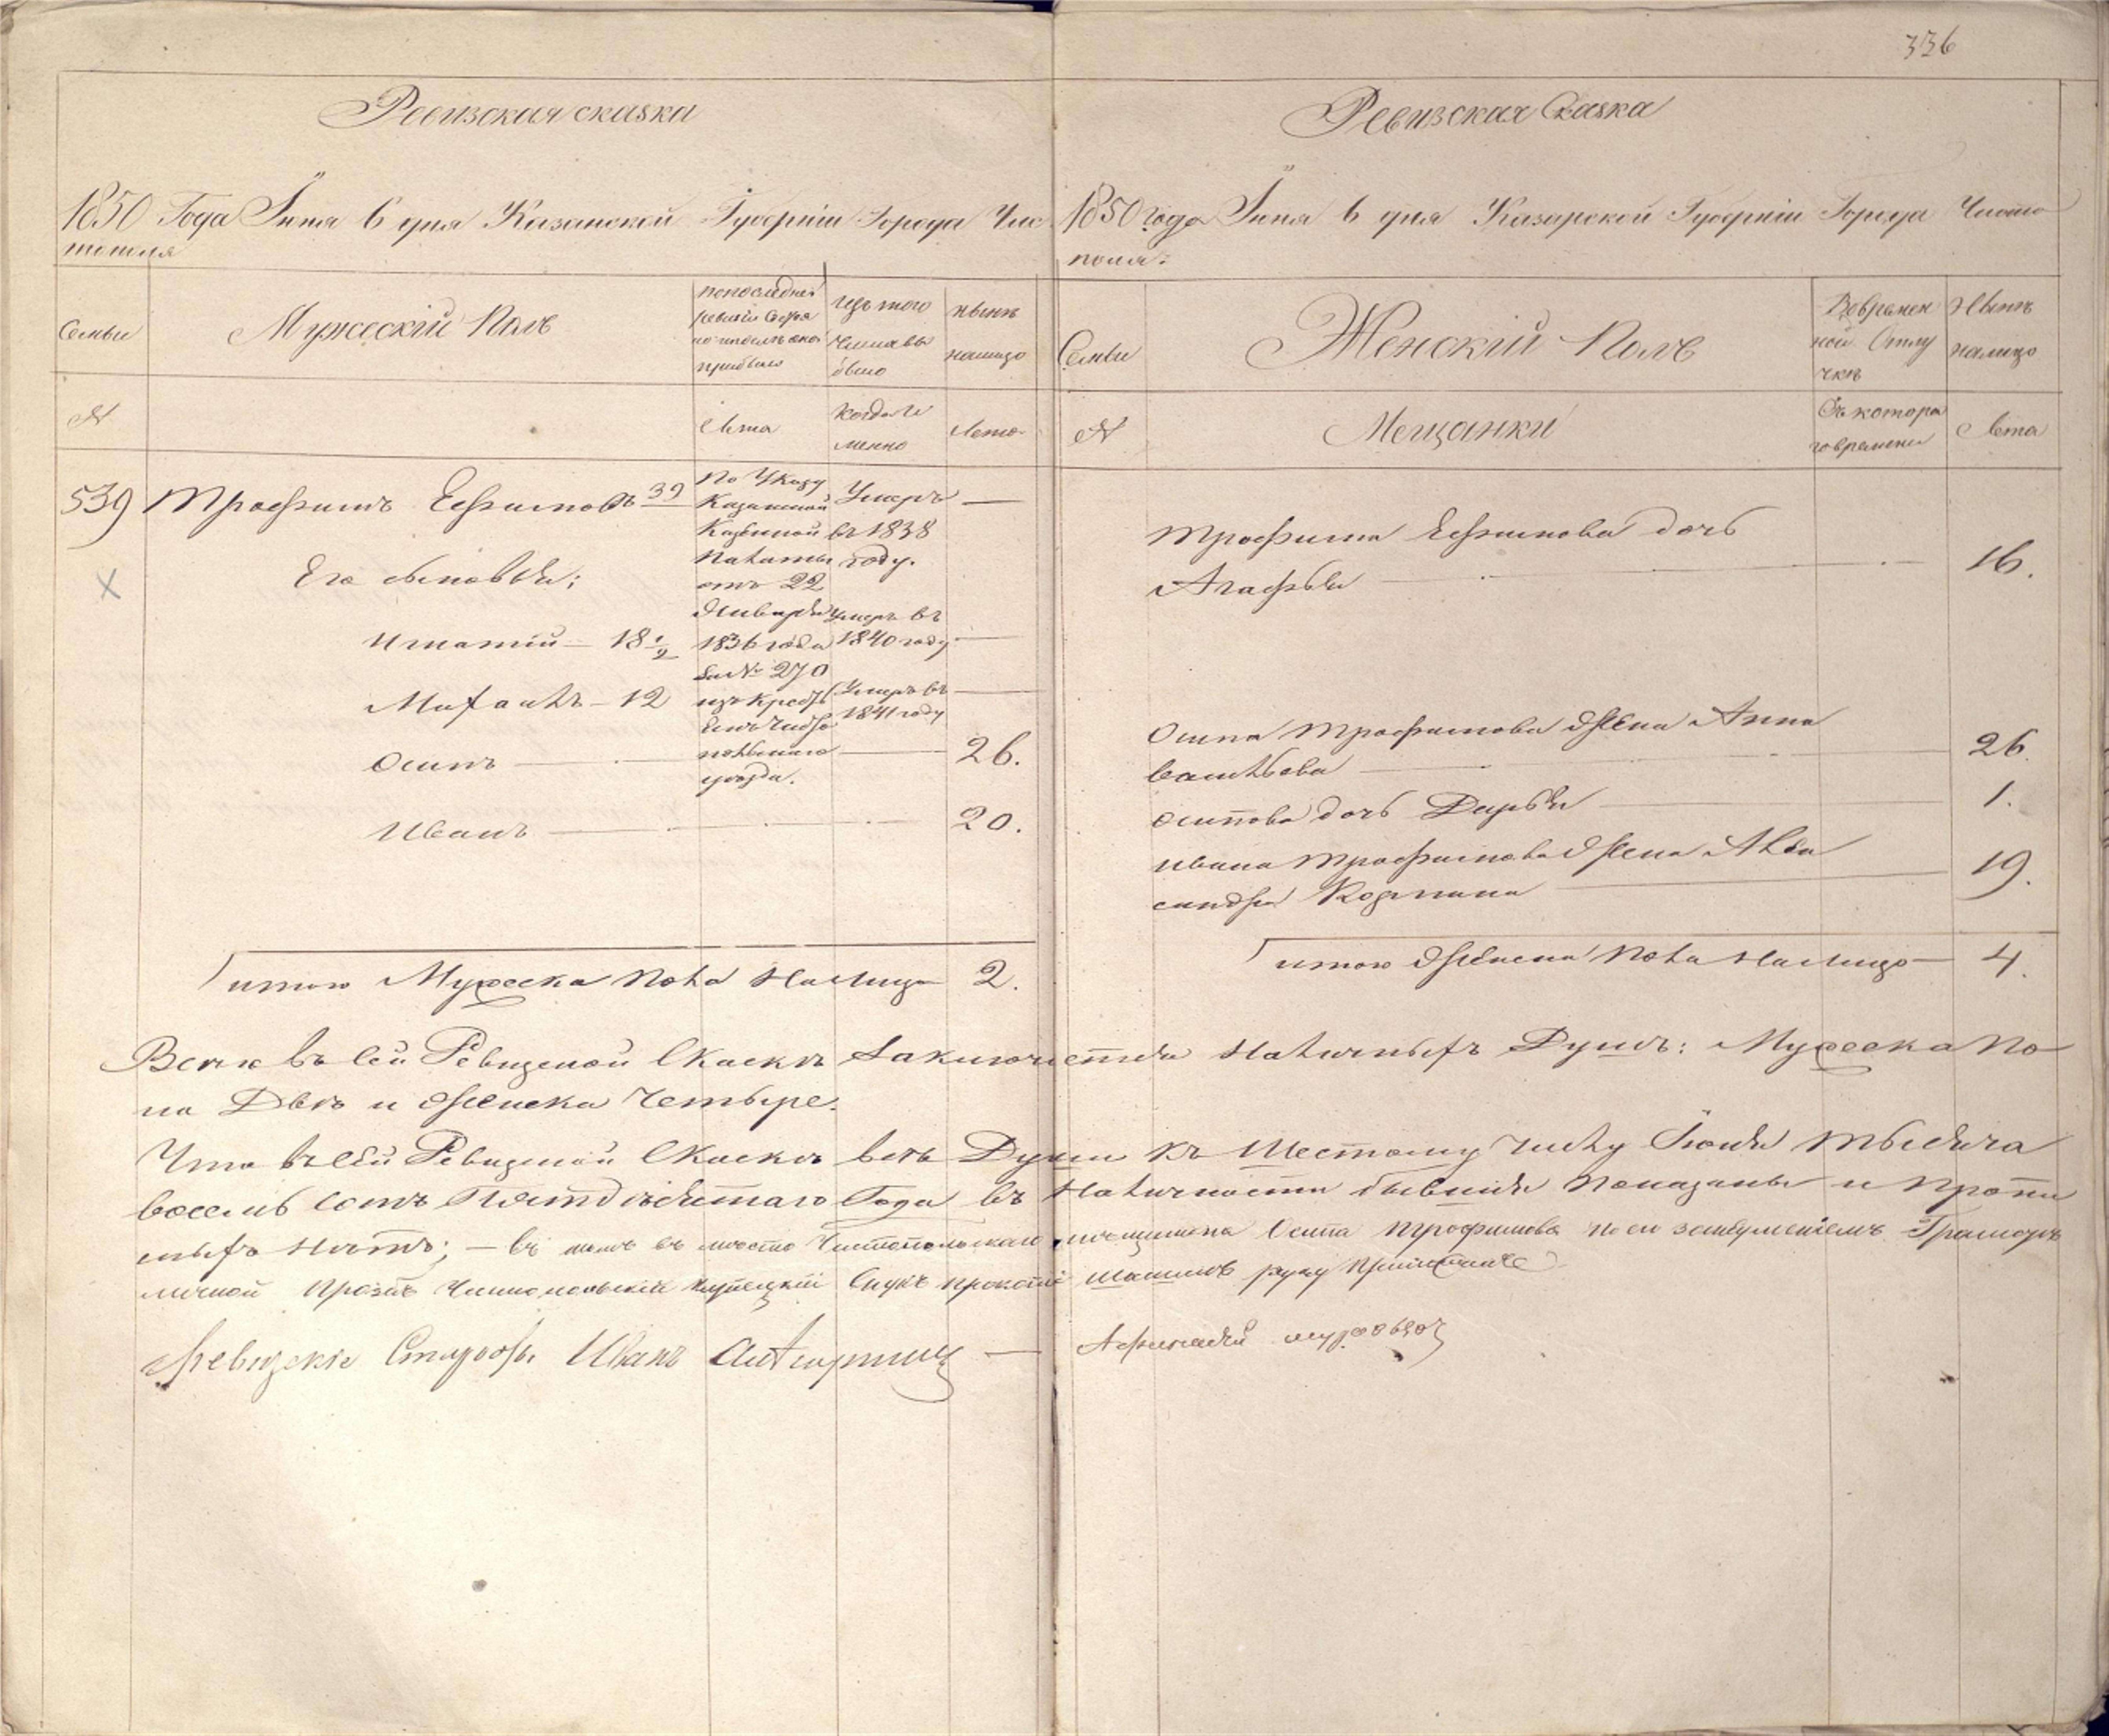 336
Ревизская сказка
1850 Года Іюня 6 дня Казанской Губерніи Города Чис
тополя
Семьи
Мужескій Полъ
по последней
ревизіи состоя
ло и после оной
прибыло
изъ того
числа вы
было
ныне
налицо
№
Лета
Когда и
менно
Лета
539
Трофимъ Ефимовъ 39
По Указу
Казанской
Казенной
Палаты
отъ 22
Января
1836 года
за № 270
изъ Кресть
янъ Чисто
польскаго
уезда.
Умеръ
въ 1838
году.
—
Его сыновья:
Игнатій — 18 1/2
Умеръ въ
1840 году —
Михаилъ — 12
Умеръ въ
1841 году —
Осипъ — 26.
Иванъ — 20.
итого Мужеска Пола Налицо 2.
Ревизская Сказка
1850 года Іюня 6 дня Казанской Губерніи Города Чисто
поля:
Семьи
Женскій Полъ
Вовремен
ной Отлу
чкѣ
Ныне
налицо
№
Мещанки
Съ котора
го времени
Лета
Трофима Ефимова дочь
Агафья — 16.
Осипа Трофимова Жена Анна
Васильева — 26.
Осипова дочь Дарья — 1.
Ивана Трофимова Жена Алек
сандра — 19.
итого Женска Пола Налицо — 4.
Всего въ сей Ревизской Сказкѣ Заключается Наличныхъ Душъ: Мужеска По
ла Двѣ и Женска Четыре.
Что въ сей Ревизской Сказкѣ всѣ Души къ Шестому Числу Іюня Тысяча
восемь сотъ Пятдѣсятаго Года въ Наличности бывшія Показаны и Пропи
сныхъ Нѣтъ; — въ томъ въ место Чистопольскаго мещанина Осипа Трофимова по его Грамоте
личной прозьбѣ Чистопольскій купеческій Внукъ Прокопій Шашинъ руку приложилъ
Ревизскіе Иванъ —